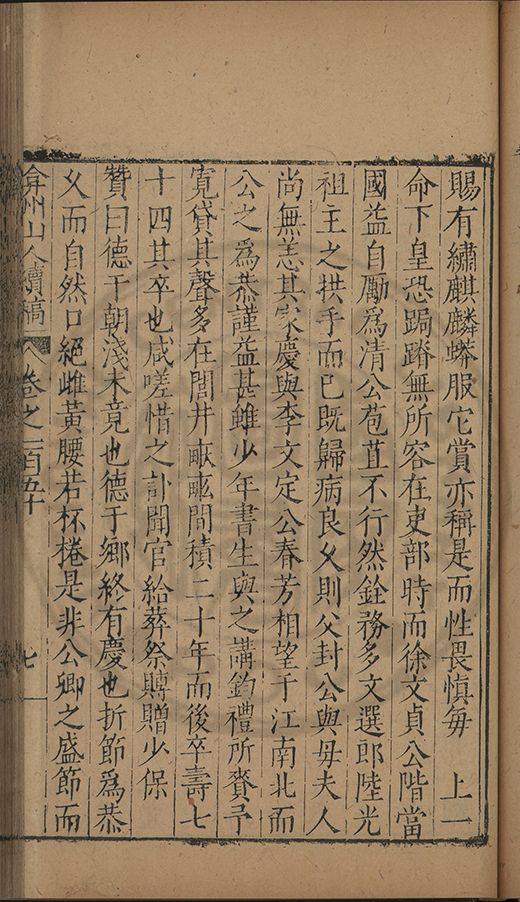 賜有繡麒麟蟒服它賞亦稱是而性畏慎每　上一
命下皇恐跼蹐無所容在吏部時而徐文貞公階當
國益自勵為清公苞苴不行然銓務多文選郎陸光
祖主之拱手而已既歸病良久則父封公與母夫人
尚無恙其家慶與李文定公春芳相望于江南北而
公之為恭謹益甚雖少年書生與之講鈞禮所賚予
寬貸其聲多在閭井畎畝間積二十年而後卒壽七
十四其卒也咸嗟惜之訃聞官給葬祭賻贈少保
贊曰德于朝淺未竟也德于鄉終有慶也折節為恭
久而自然口絕雌黃腰若杯棬是非公卿之盛節而
弇州山人續稿　卷之一百五十　七